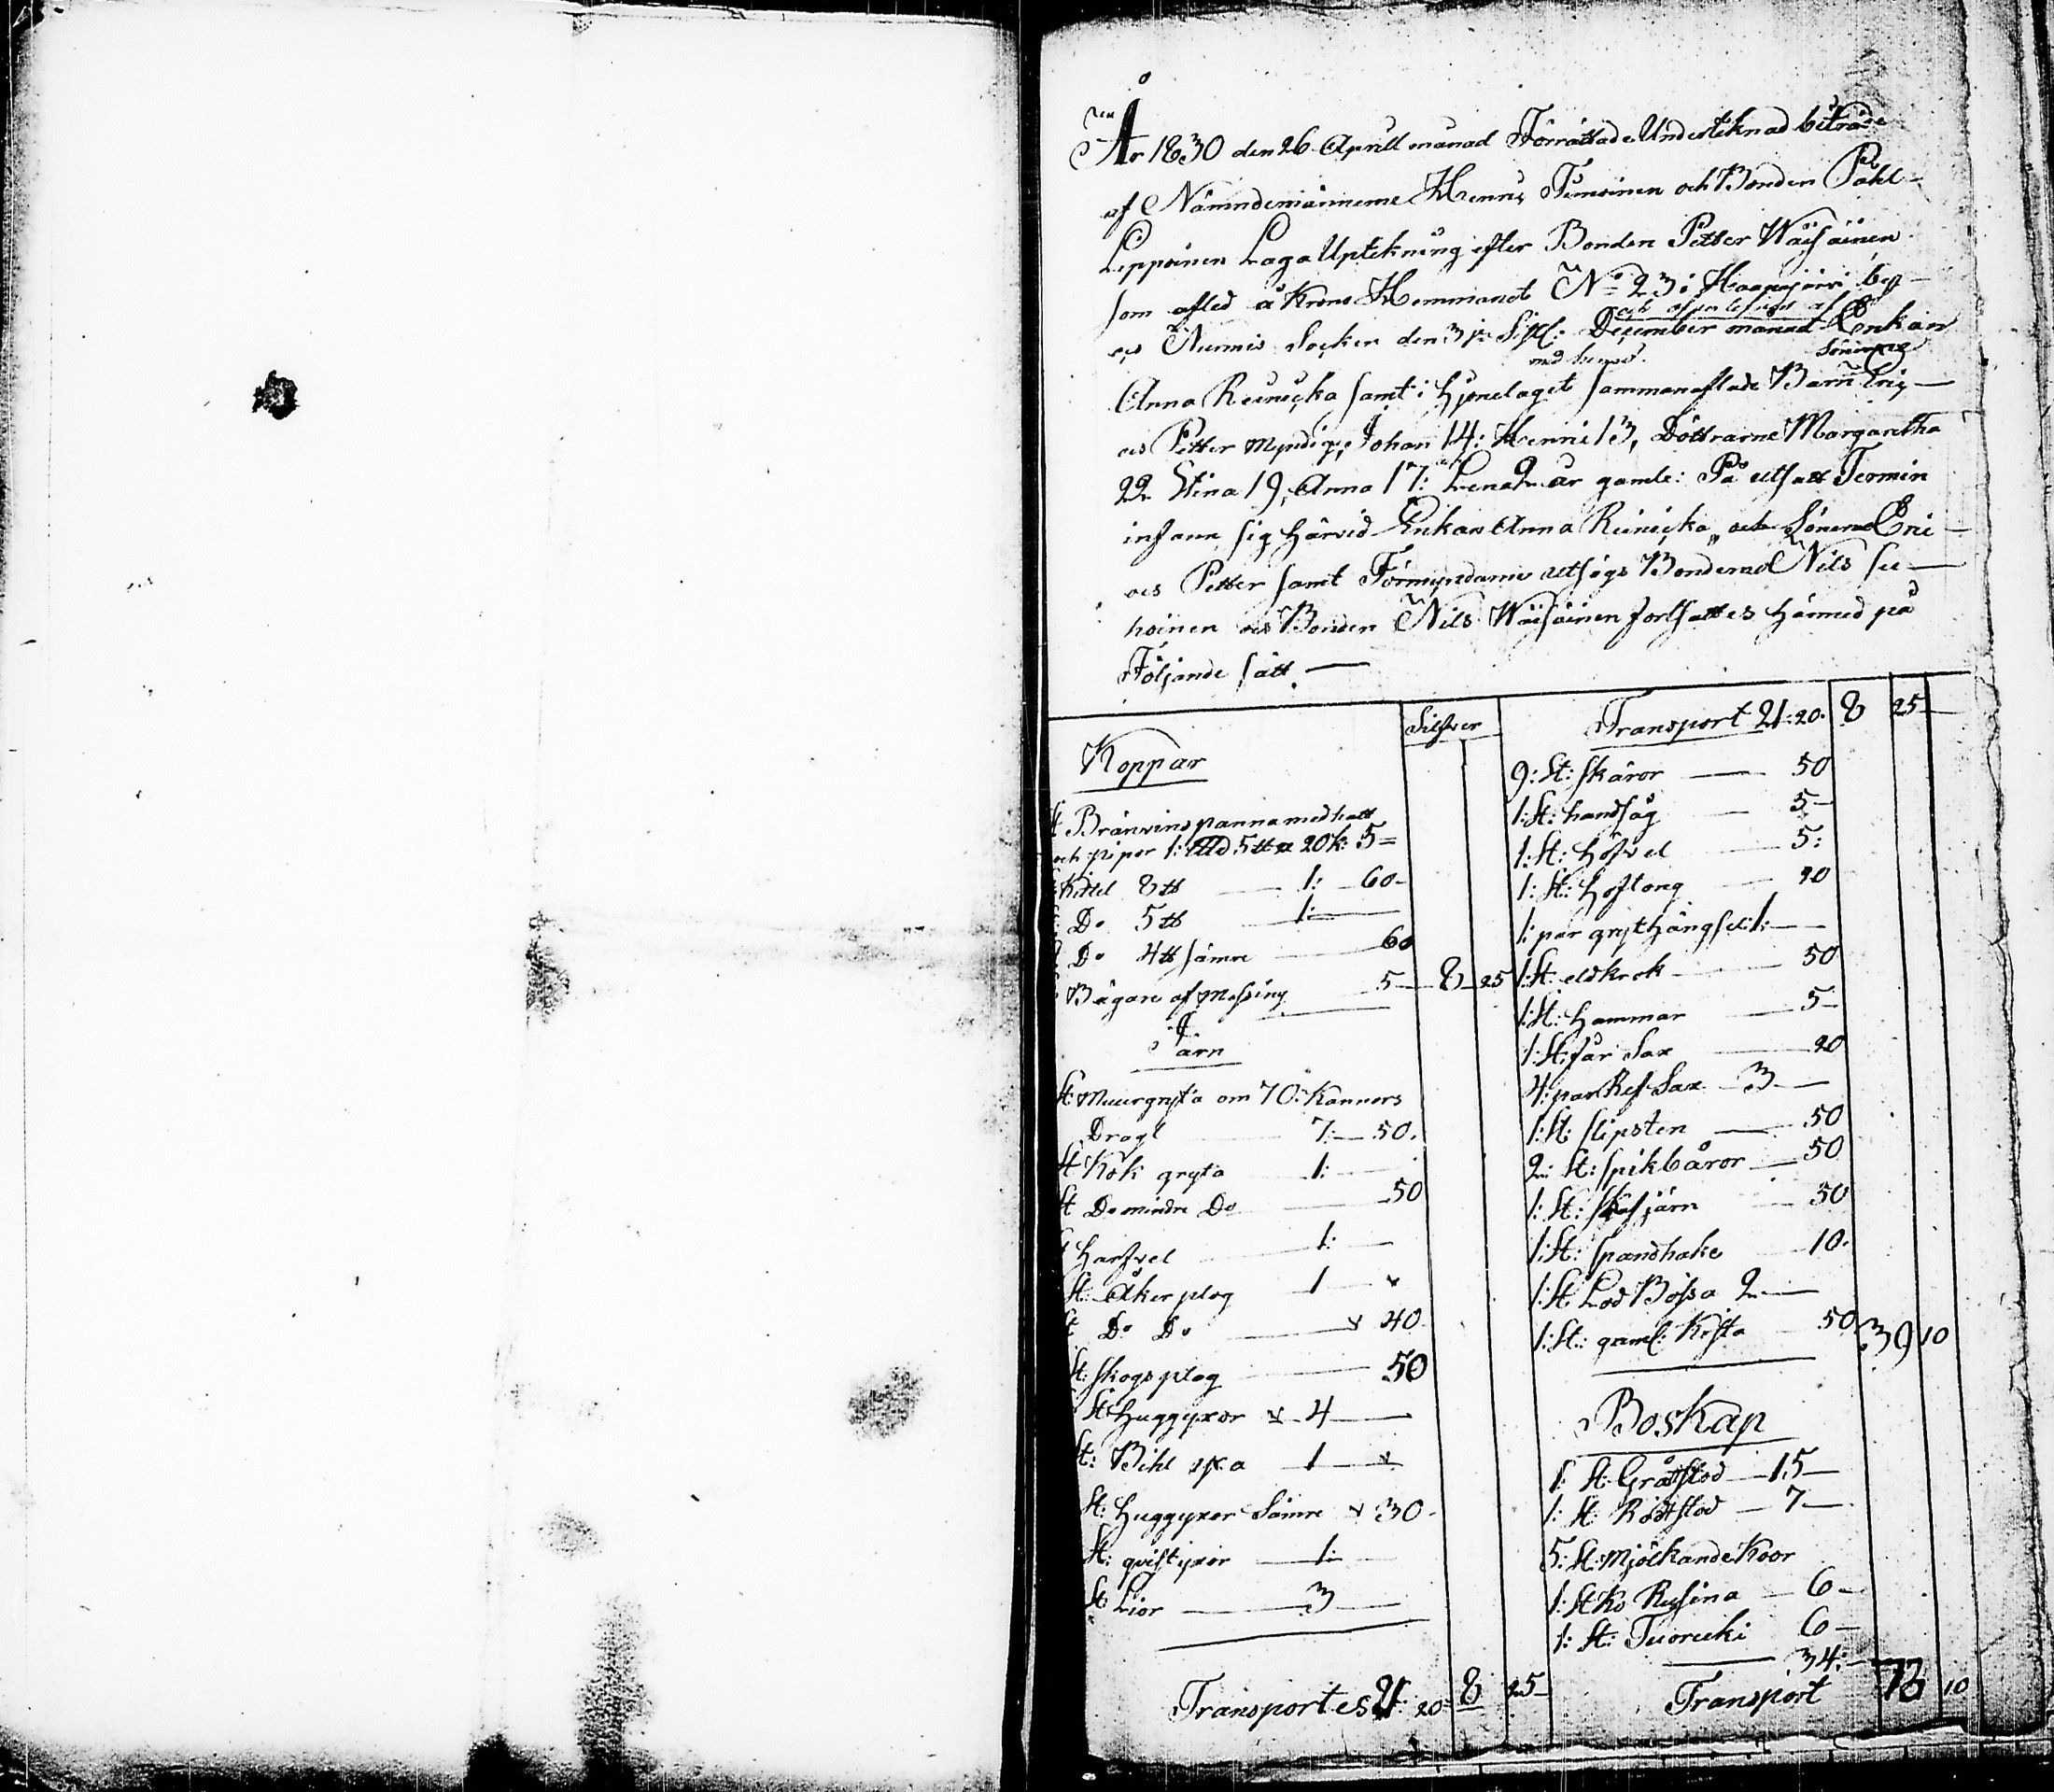 År 1830 den 26 Aprill månad Förrättade Underteknad biträde
af Nämndemännerne Henric Timoinen och Bonden Påhl
Leppoinen Laga Uptekning efter Bonden Petter Wäisäinen
som afled å Krono Hemmanet No 23 i Haapajärvi by
och Nurmis Socken den
och efterlefves af
December månad Enkan
med henne
Sönerne
Anna Reinicka samt i Hjonelaget sammanaflade Barn Eric
os Petter Myndige, Johan 14: Henric 13, Döttrarne Margaretha
22 Stina 19, Anna 17: Lena 2 år gamle: På utsatt Termin
infann sig härvid Enkan Anna Reinicka, och Sönerne Eric
os Petter samt Förmyndarne utsågs Bonden Nils
hoinen os Bonden Nils Wäisäinen fortsattes härmed på
Följande sätt
Silfver
Koppar
St Bränvins panna med hatt
och pipor 1: 5 tt a 20 k: 5=
Kittel 8 tt 1: 60
Do 5 tt 1:
Do 4 tt sämre 60
Bägare af Messing 5 8 25
Järn
St: Muurgryta om 70: Kannors
Dragt 7: 50.
St Kok gryta 1:
St Do mindre Do 50
Harfvel 1:
St: Åker plog 1
St Do Do 40
St: Skogsplog 50
St: Huggyxor 4
St: Bihl yxa 1
St: Huggyxor Sämre 30
St: qvistyxor 1:
St: Lior 3
Transporteres 21 20 8 25
Transport 21:20. 8 25
9: St: Skäror 50
1: St: handsåg 5
1: St: Höfvel 5:
1: St: Hoftong 20
1: par grythängslei 1:
1: St eldkrok 50
1: St: Hammar 5
1: St: får Sax 20
4: par Ref Sax 3
1: St: Slipsten 50
2: St: Spikbåror 50
1: St: Skafjärn 50
1: St: Spandhake 10.
1: St Lod Bössa 2
1: St: gaml: Kista 50 39 10
Boskap
1: St Grått stod 15
1: St Rödt stod 7
5: St: Mjölkande Koor
1: St Ko Rusina 6
1: St: Tuorucki 6
34:
Transport 73 10